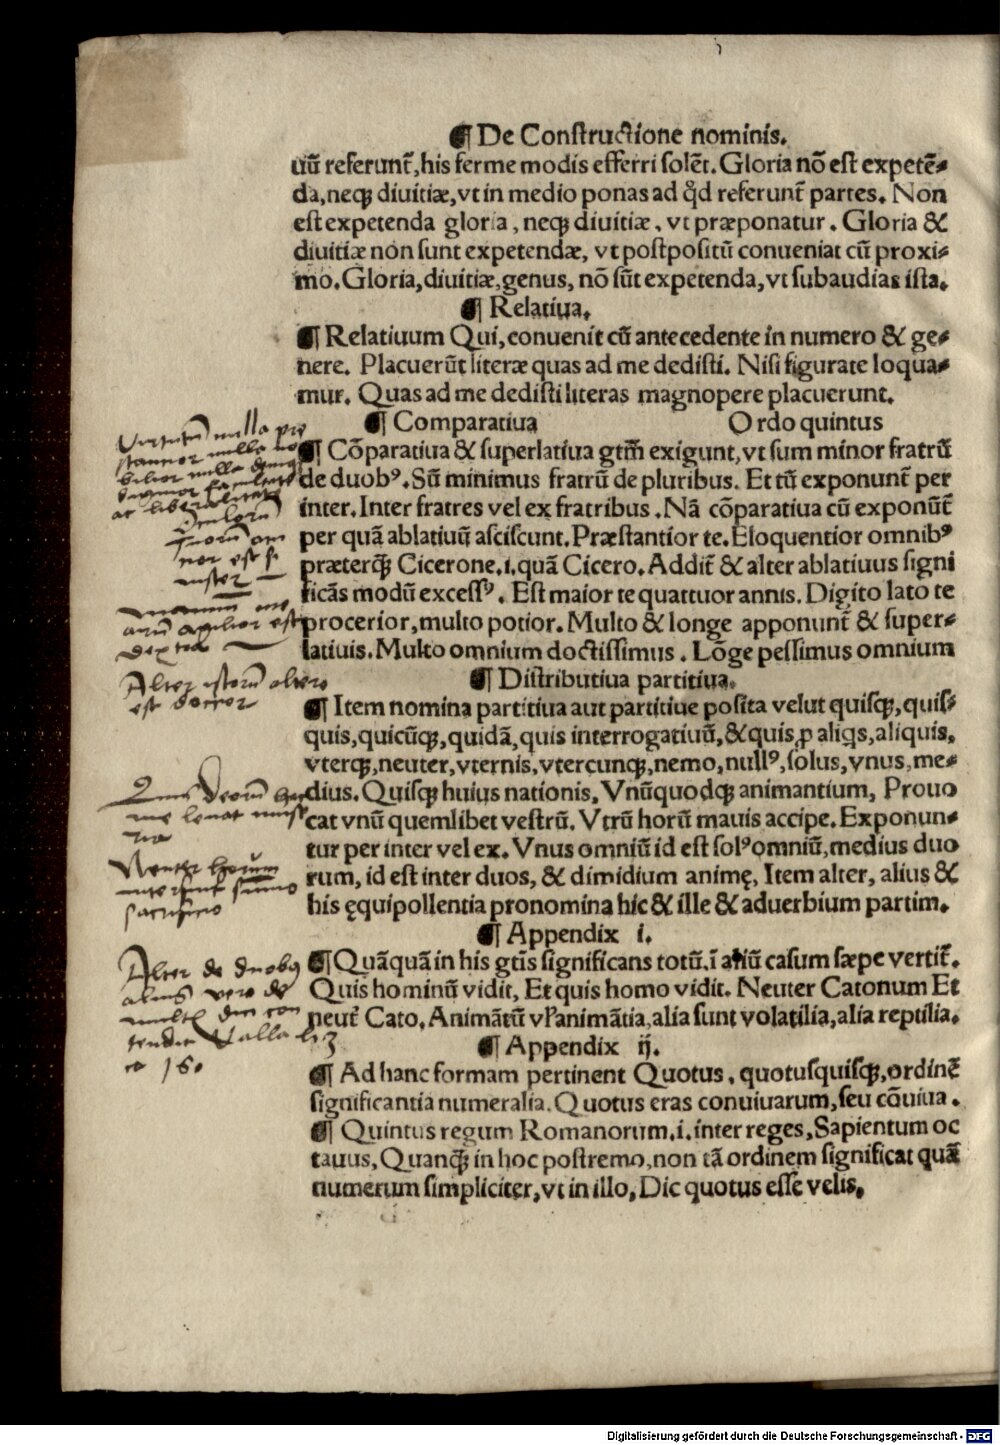 ¶ De Constructione nominis.
uū referunt᷑, his ferme modis efferri solēt. Gloria nō est expetē⸗
da, neqꝫ diuitiæ, vt in medio ponas ad qd̾ referunt᷑ partes. Non
est expetenda gloria, neqꝫ diuitiæ, vt præponatur. Gloria &
diuitiæ non sunt expetendæ, vt postpositū conueniat cū proxi⸗
mo. Gloria, diuitiæ, genus, nō sūt expetenda, vt subaudias ista.
¶ Relatiua.
¶ Relatiuum Qui, conuenit cū antecedente in numero & ge⸗
nere. Placuerūt literæ quas ad me dedisti. Nisi figurate loqua⸗
mur. Quas ad me dedisti literas magnopere placuerunt.
¶ Comparatiua Ordo quintus
¶ Cōparatiua & superlatiua gtm̄ exigunt, vt sum minor fratrū
de duobꝰ. Sū minimus fratrū de pluribus. Et tū exponunt᷑ per
inter. Inter fratres vel ex fratribus. Nā cōparatiua cū exponūt᷑
per quā ablatiuū asciscunt. Præstantior te. Eloquentior omnibꝰ
præterqꝫ̄ Cicerone .i. quā Cicero. Addit᷑ & alter ablatiuus signi
ficās modū excessꝰ. Est maior te quattuor annis. Digito lato te
procerior, multo potior. Multo & longe apponunt᷑ & super⸗
latiuis. Multo omnium doctissimus. Lōge pessimus omnium
¶ Distributiua partitiua.
¶ Item nomina partitiua aut partitiue posita velut quisqꝫ, quis⸗
quis, quicūqꝫ, quidā, quis interrogatiuū, & quis ꝓ aliqs, aliquis,
vterqꝫ, neuter, vternis, vtercunqꝫ, nemo, nullꝰ, solus, vnus, me⸗
dius. Quisqꝫ huius nationis, Vnūquodqꝫ animantium, Prouo
cat vnū quemlibet vestrū. Vtrū horū mauis accipe. Exponun⸗
tur per inter vel ex. Vnus omniū id est solꝰ omniū, medius duo
rum, id est inter duos, & dimidium animę, Item alter, alius &
his ęquipollentia pronomina hic & ille & aduerbium partim.
¶ Appendix i.
¶ Quāquā in his gtīs significans totū, ī aliū casum sæpe vertit᷑.
Quis hominū vidit, Et quis homo vidit. Neuter Catonum Et
neut᷑ Cato, Animātū vl̾ animātia, alia sunt volatilia, alia reptilia.
¶ Appendix ij.
¶ Ad hanc formam pertinent Quotus, quotusquisqꝫ, ordinē
significantia numeralia. Quotus eras conuiuarum, seu cōuiua.
¶ Quintus regum Romanorum .i. inter reges, Sapientum oc
tauus, Quanqꝫ̄ in hoc postremo, non tā ordinem significat quā
numerum simpliciter, vt in illo, Dic quotus esse velis.
Virtutū nulla pre
stantior nulla no
bilior nulla
ac liberalitate
Oculorū
quorū
nor est si
nister
Manuum
arū agilior est
dextra
Alter istorū altero
est doctior
Quis Deorū
me levat mise
ria
Neuter horum
interfuit summo
sacrificio
Alter de duobꝰ
alius vero de
multis
tendit Valla li 3
ca 160
Digitalisierung gefördert durch die Deutsche Forschungsgemeinschaft - DFG